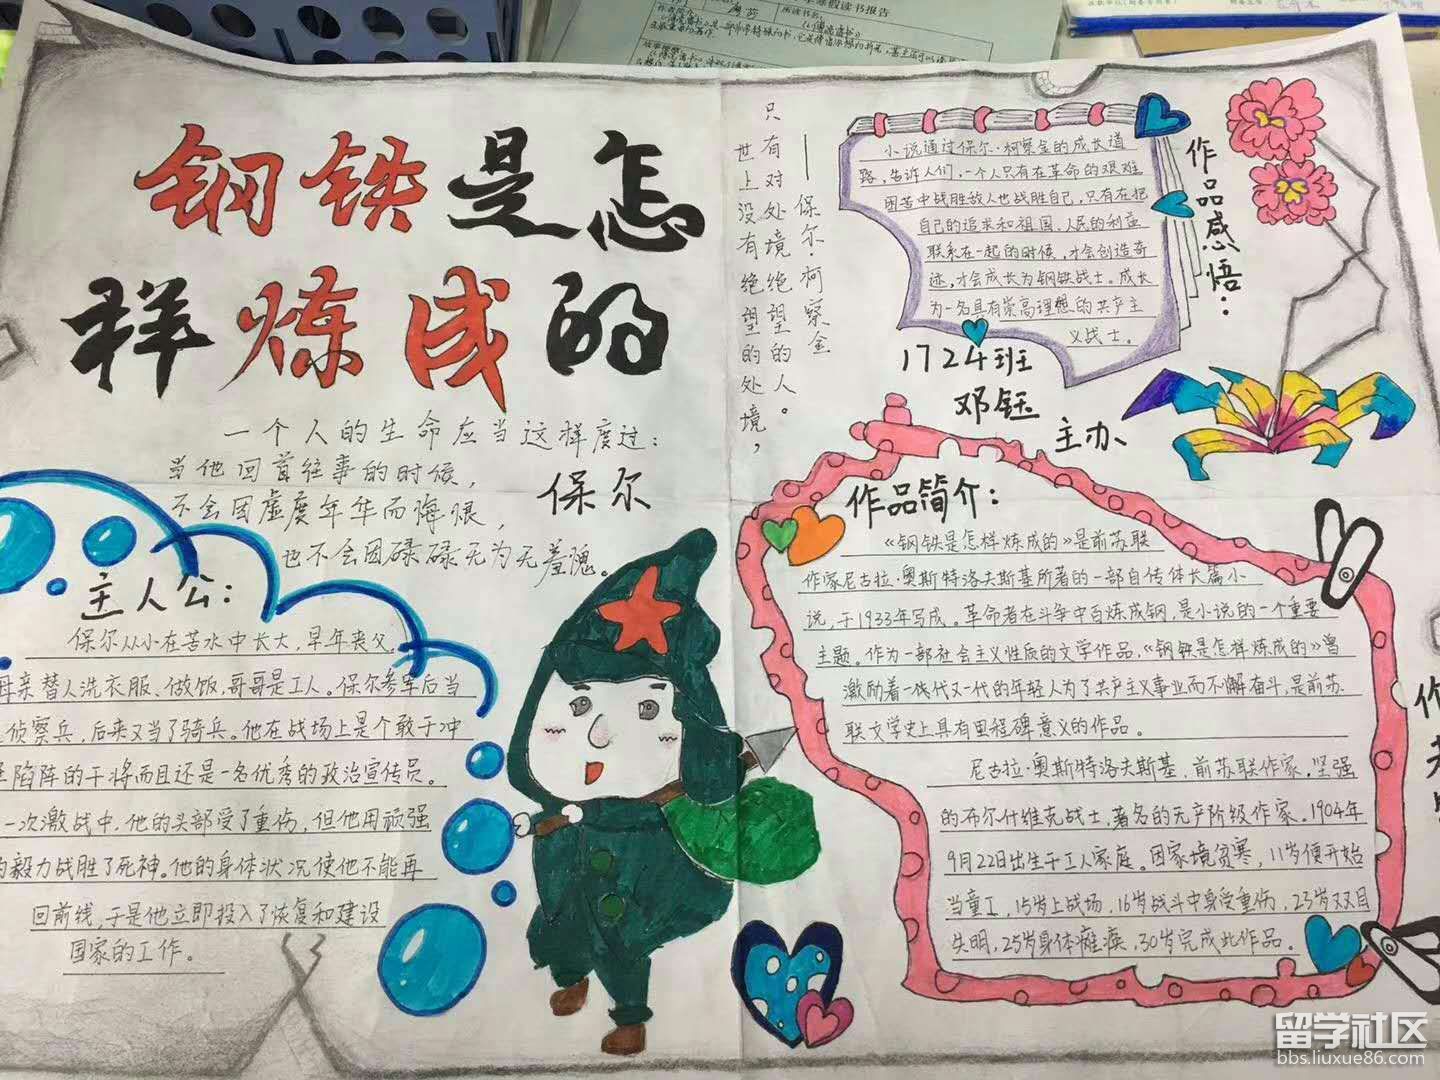 假读书报告
钢铁是怎
样炼成的
一个人的生命应当这样度过：
当他回首往事的时候，
不会因虚度年华而悔恨，
也不会因碌碌无为而羞愧。
保尔
主人公：
保尔从小在苦水中长大，早年丧父。
母亲替人洗衣服、做饭，哥哥是工人。保尔参军后当
侦察兵，后来又当了骑兵。他在战场上是个敢于冲
陷阵的干将而且还是一名优秀的政治宣传员。
一次激战中，他的头部受了重伤，但他用顽强
毅力战胜了死神。他的身体状况使他不能再
回前线，于是他立即投入了恢复和建设
国家的工作。
只有对处境绝望的人。
世上没有绝望的处境，
——保尔·柯察金
作品感悟：
小说通过保尔·柯察金的成长道
路，告诉人们，一个人只有在革命的艰难
困苦中战胜敌人也战胜自己，只有在把
自己的追求和祖国、人民的利益
联系在一起的时候，才会创造奇
迹，才会成长为钢铁战士。成长
为一名具有崇高理想的共产主
义战士。
1724班
邓钰
主办
作品简介：
《钢铁是怎样炼成的》是前苏联
作家尼古拉·奥斯特洛夫斯基所著的一部自传体长篇小
说，于1933年写成。革命者在斗争中百炼成钢，是小说的一个重要
主题。作为一部社会主义性质的文学作品，《钢铁是怎样炼成的》曾
激励着一代代又一代的年轻人为了共产主义事业而不懈奋斗，是前苏
联文学史上具有里程碑意义的作品。
尼古拉·奥斯特洛夫斯基，前苏联作家。坚强
的布尔什维克战士，著名的无产阶级作家。1904年
9月22日出生于工人家庭。因家境贫寒，11岁便开始
当童工，15岁上战场，16岁战斗中身受重伤，23岁双目
失明，25岁身体瘫痪，30岁完成此作品。
留学社区
bbs.liuxue86.com